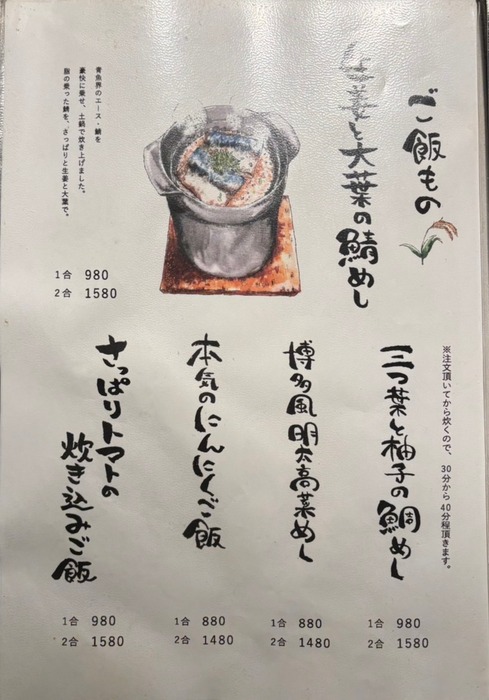 ご飯もの
生姜と大葉の鯖めし
青魚界のエース・鯖を
豪快に乗せ、土鍋で炊き上げました。
脂の乗った鯖を、さっぱりと生姜と大葉で。
1合 980
2合 1580
※注文頂いてから炊くので、30分から40分程頂きます。
三つ葉と柚子の鯛めし
1合 980
2合 1580
博多風明太高菜めし
1合 880
2合 1480
本気のにんにくご飯
1合 880
2合 1480
さっぱりトマトの
炊き込みご飯
1合 980
2合 1580